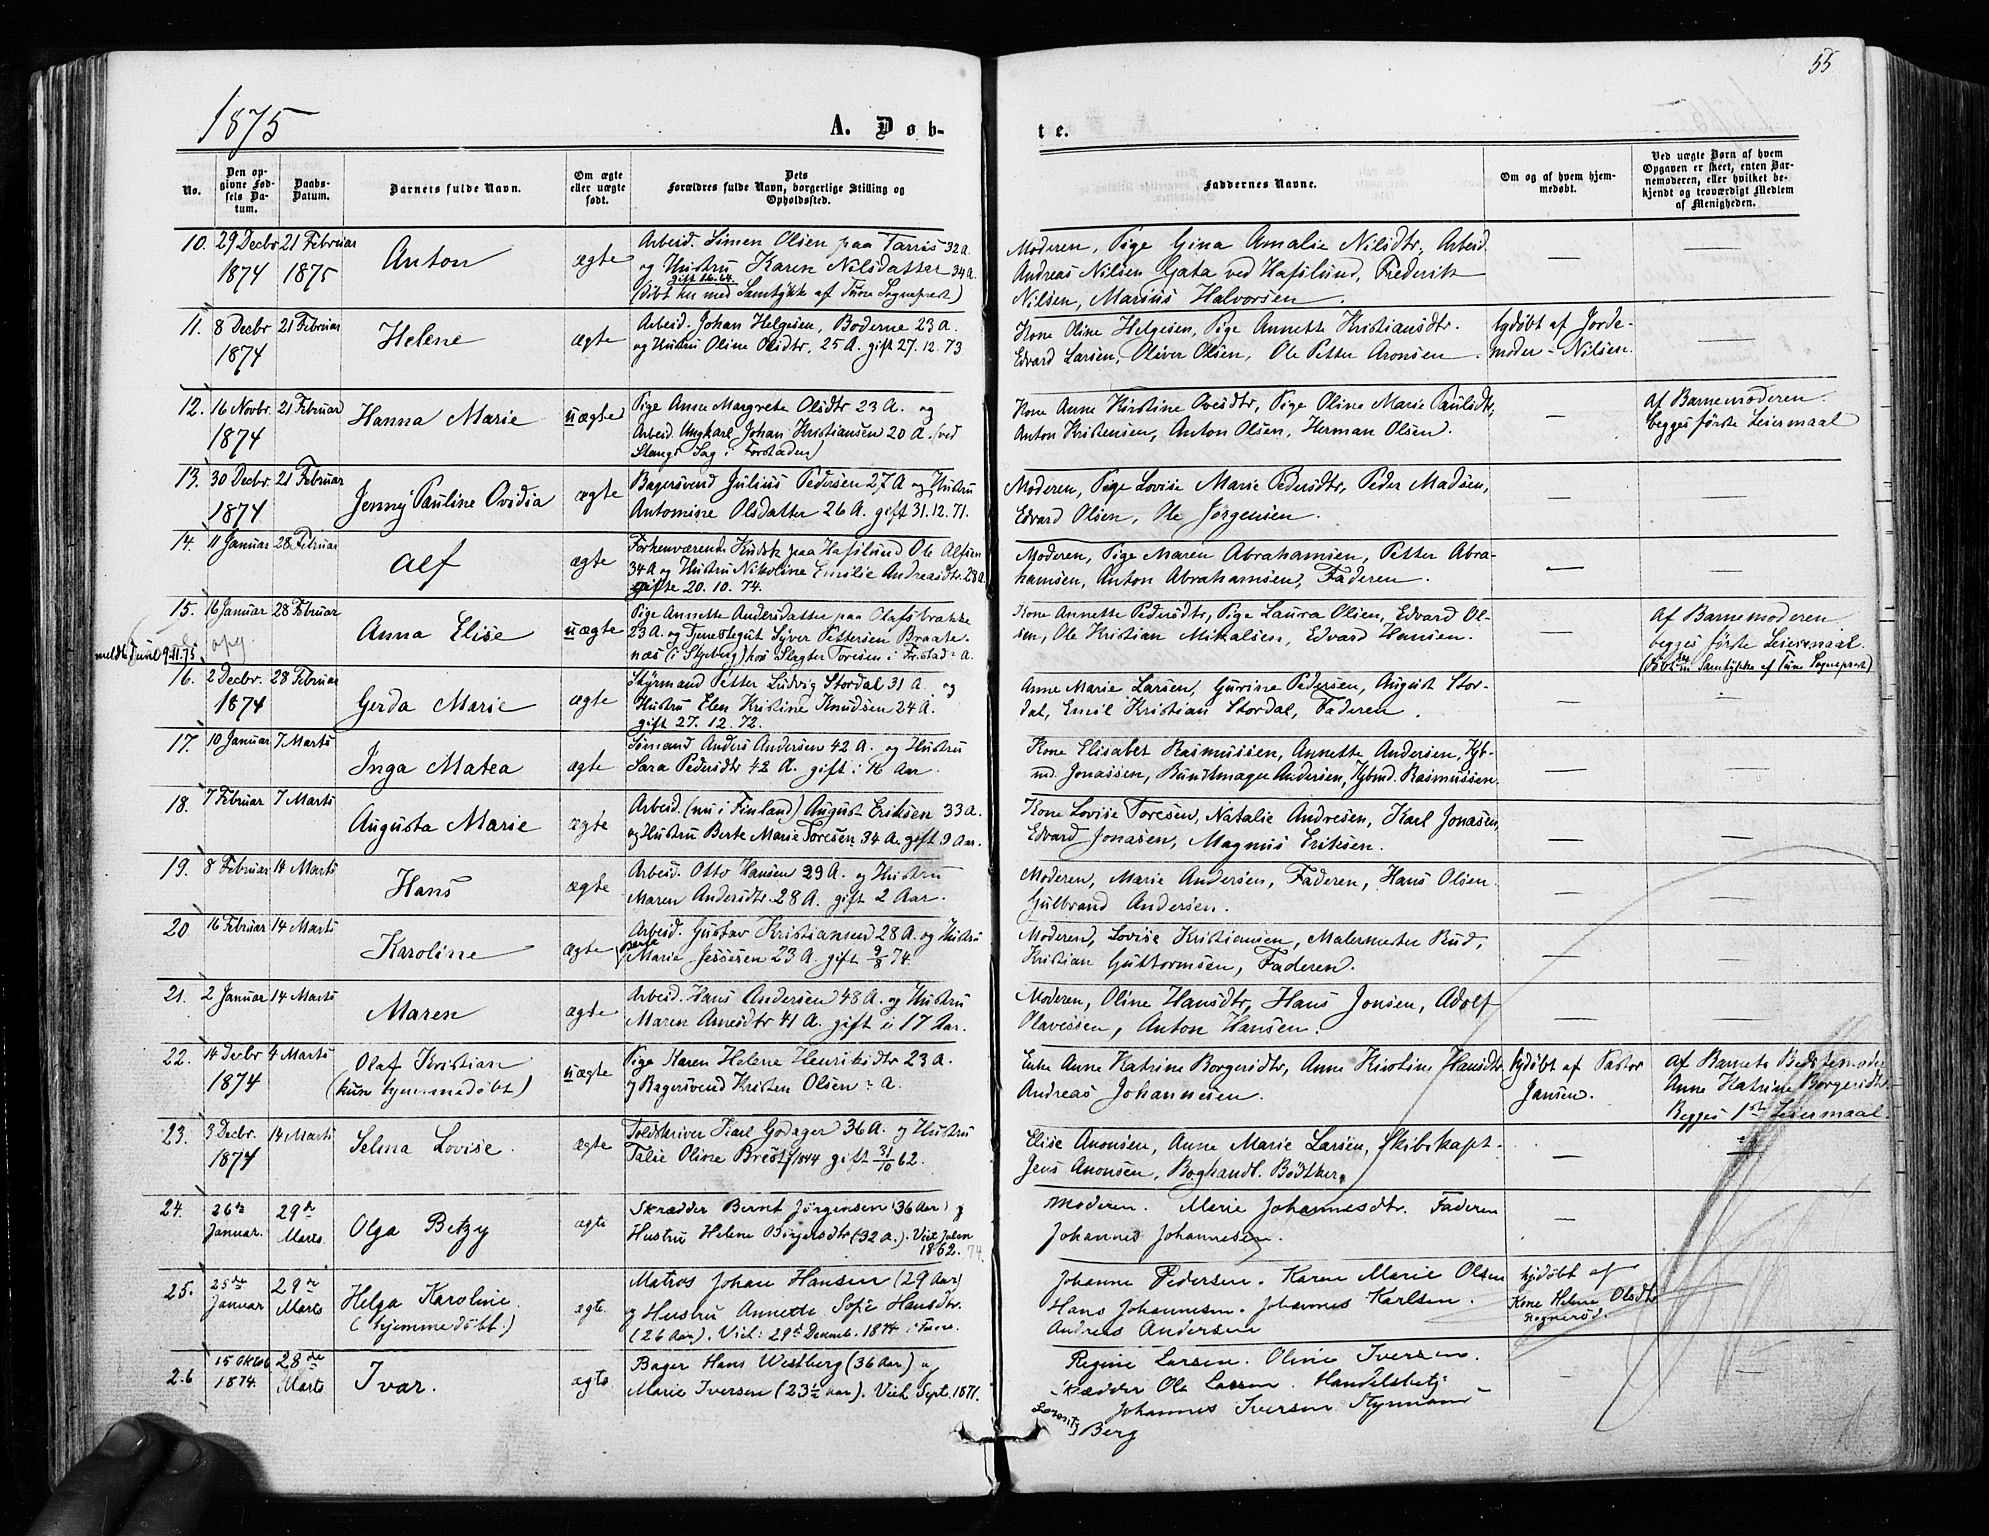 55
1875
A. Døb-
te.
No.
Den op-
givne Fød-
sels Da-
tum.
Daabs-
Datum.
Barnets fulde Navn.
Om ægte
eller uægte
født.
Dets
Forældres fulde Navn, borgerlige Stilling og
Opholdssted.
Faddernes Navne.
Om og af hvem hjem-
medøbt.
Ved uægte Børn af hvem
Opgaven er skeet, enten Bar-
nemoderen, eller hvilket be-
kjendt og troværdigt Medlem
af Menigheden.
10. 29 Decbr 21 Februar
1874 1875
Anton
ægte
Arbeid. Simen Olsen paa Tarris 32 A.
og Hustru Karen Nilsdatter 34 A.
(døbt her med Samtykke af Tune Sognepræst)
Moderen, Pige Gina Amalie Nilsdtr, Arbeid.
Andreas Nilsen Gata ved Hafslund, Frederik
Nilsen, Marius Halvorsen.
—
—
11. 8 Decbr 21 Februar
1874
Helene
ægte
Arbeid. Johan Helgesen, Boderne 23 A.
og Hustru Oline Olsdtr, 25 A. gift 27.12.73
Kone Oline Helgesen, Pige Annette Kristiansdtr.
Edvard Larsen, Oliver Olsen, Ole Petter Aronsen.
hjdøbt af Jorde-
moder Nilsen.
—
12. 16 Novbr. 21 Februar
1874
Hanna Marie
uægte
Pige Anne Margrete Olsdtr 23 A. og
Arbeid. Ungkarl Johan Kristiansen 20 A. (ved
Stangs Sag i Forstaden)
Kone Anne Kirstine Ovesdtr, Pige Oline Marie Paulsdtr,
Anton Kristensen, Anton Olsen, Herman Olsen.
—
Af Barnemoderen.
begges første Leiermaal
13. 30 Decbr 21 Februar
1874
Jenny Pauline Ovidia
ægte
Bagersvend Julius Pedersen 27 A og Hustru
Antomine Olsdatter 26 A. gift 31.12.71.
Moderen, Pige Lovise Marie Pedersdtr, Peder Madsen,
Edvard Olsen, Ole Jørgensen.
—
—
14. 11 Januar 28 Februar
Alf
ægte
Forhenværende Kudsk paa Hafslund Ole Alfsen
34 A og Hustru Nikoline Emilie Andreasdtr. 28 A.
gifte 20.10.74.
Moderen, Pige Maren Abrahamsen, Petter Abra-
hamsen, Anton Abrahamsen, Faderen.
—
—
15. 16 Januar 28 Februar
Anna Elise
uægte
Pige Annette Andersdatter paa Olafsbrakke
23 A. og Tjenestegut Syver Pettersen Braate-
næs
Kone Annette Pedersdtr, Pige Laura Olsen, Edvard Ol-
sen, Ole Kristian Mikalsen, Edvard Hansen.
—
Af Barnemoderen
begges første Leiermaal.
(Døbt her m Samtykke af Tune Sognepræst)
16. 2 Decbr. 28 Februar
1874
Gerda Marie
ægte
Styrmand Petter Ludvig Stordal 31 A. og
Hustru Elen Kristine Knudsen 24 A.
gift 27.12.72.
Anne Marie Larsen, Gurine Pedersen, August Stor-
dal, Emil Kristian Stordal, Faderen.
—
—
17. 10 Januar 7 Marts
Inga Matea
ægte
Sømand Anders Andersen 42 A. og Hustru
Sara Pedersdtr 42 A. gift i 16 Aar.
Kone Elisabet Rasmussen, Annette Andersen, Kjb-
md. Jonassen, Bundtmager Andersen, Kjbmd. Rasmussen.
—
—
18. 7 Februar 7 Marts
Augusta Marie
ægte
Arbeid. (nu i Finland) August Eriksen 33 A.
og Hustru Berte Marie Toresen 34 A. gift 9 Aar.
Kone Lovise Toresen, Natalie Andresen, Karl Jonasen,
Edvard Jonasen, Magnus Eriksen.
—
—
19. 8 Februar 14 Marts
Hans
ægte
Arbeid. Otto Hansen 29 A. og Hustru
Maren Andersdtr. 28 A. gift 2 Aar.
Moderen, Marie Andersen, Faderen, Hans Olsen
Gulbrand Andersen.
—
—
20 16 Februar 14 Marts
Karoline
ægte
Arbeid. Gustav Kristiansen 28 A. og Hustru
Marie Jessesen 23 A. gift 9/8 74.
Moderen, Lovise Kristiansen, Malermester Rud,
Kristian Guttormsen, Faderen.
—
—
21. 2 Januar 14 Marts
Maren
ægte
Arbeid. Hans Andersen 48 A. og Hustru
Maren Arnesdtr 41 A. gift i 17 Aar.
Moderen, Oline Hansdtr, Hans Jonsen, Adolf
Olavessen, Anton Hansen.
—
—
22. 14 Decbr 4 Marts
1874
Olaf Kristian
(kun hjemmedøbt)
uægte
Pige Karen Helene Henriksdtr 23 A.
og Bagersvend Kristen Olsen - A.
Enke Anne Katrine Borgersdtr, Anne Kirstine Hansdtr,
Andreas Johannesen.
hjdøbt af Pastor
Jansen.
Af Barnets Bedstemoder
Anne Katrine Borgersdtr.
Begges 1ste Leiermaal
23. 3 Decbr. 14 Marts
1874
Selma Lovise.
ægte
Toldskriver Karl Godager 36 A. og Hustru
Talie Oline gift 31/10 62.
Elise Anonsen, Anne Marie Larsen, Skibskapt.
Jens Anonsen, Boghandl. Bødtker.
—
—
24. 26de 29de
Januar. Marts
Olga Betzy
ægte
Skrædder Bernt Jørgensen (36 Aar) og
Hustru Helene Birgersdtr (32 A.). Viet Julen
1862.
Moderen. Marie Johannesdtr. Faderen
Johannes Johannesen.
—
25. 25de 29de
Januar Marts
Helga Karoline.
(hjemmedøbt.)
ægte.
Matros Johan Hansen (29 Aar)
og Hustru Annette Sofie Hansdtr.
(26 Aar). Viet: 29de Decemb. 1874 i Tune.
Johanne Pedersen. Karen Marie Olsen
Hans Johannesen. Johannes Karlsen.
Andreas Andersen
hjdøbt af
Kone Helene Olsdtr
26 15 Oktob 28de
1874. Marts
Ivar.
ægte
Bager Hans Westberg (36 Aar) og
Marie Iversen (23½ Aar). Viet Sept. 1871.
Regine Larsen. Oline Iversen.
Skrædder Ole Larsen. Handelsbetj.
Johannes Iversen Styrmand
Lorents
Berg
—
—